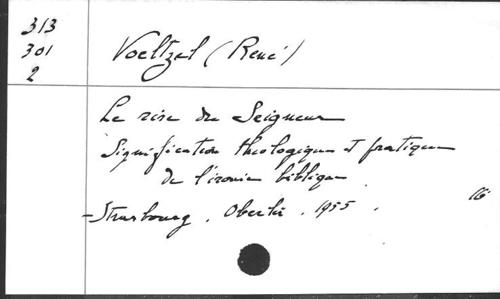 313
301
2
Voeltzel (René)
Le rire du Seigneur
Signification théologique et pratique
de l'ironie biblique
- Strasbourg . Oberlin . 1955 .
16